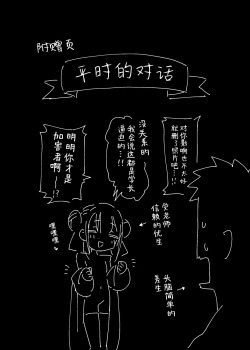 附赠页
平时的对话
对你影响也不太好
就删了照片吧…!!
没关系的
我会说这都是学长
逼迫的…!!
明明你才是
加害者啊!!
受老师
信赖的优生
嘿嘿嘿♥
头脑简单的
男生